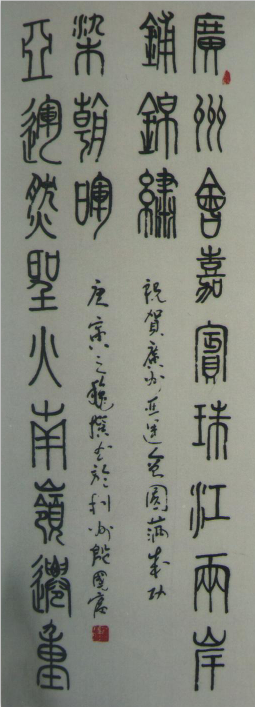 廣州會嘉賓珠江兩岸
鋪錦繡
亞運燃聖火南嶺邊
染朝暉
祝賀廣州亞運會圓滿成功
庚寅之龝撰書於利州